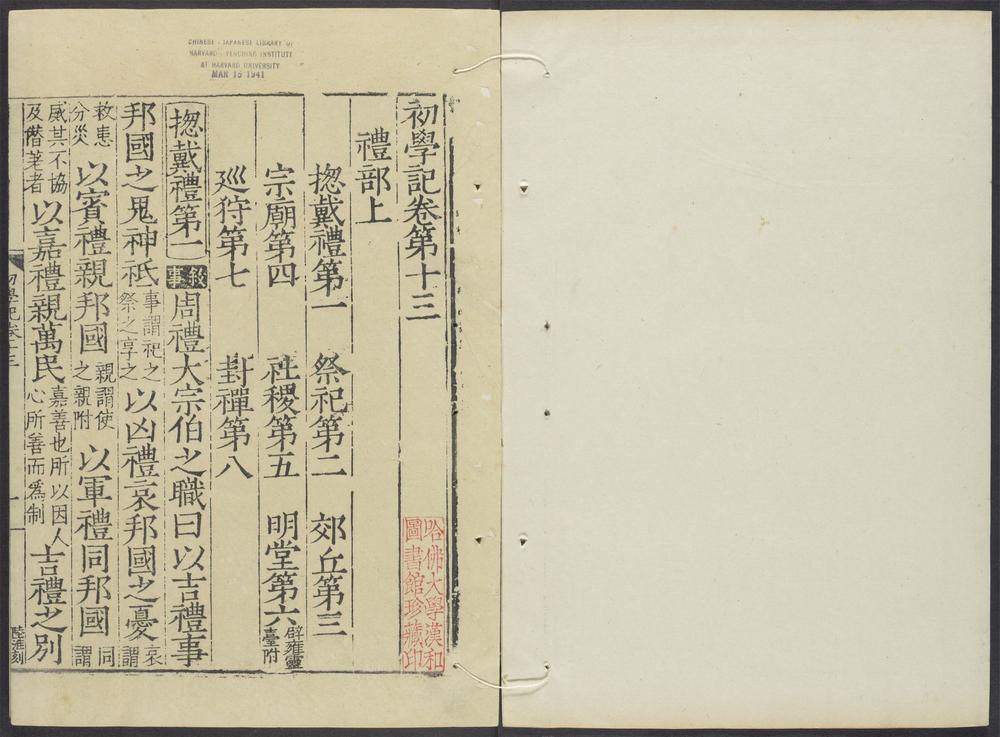 CHINESE - JAPANESE LIBRARY OF
HARVARD - YENCHING INSTITUTE
AT HARVARD UNIVERSITY
MAR 18 1941
初學記卷第十三
哈佛大學漢和
圖書館珍藏印
禮部上
揔戴禮第一 祭祀第二 郊丘第三
宗廟第四 社稷第五 明堂第六 辟雍靈臺附
巡狩第七 封禪第八
揔戴禮第一 敘事 周禮大宗伯之職曰以吉禮事
邦國之鬼神祗 事謂祀之祭之享之 以凶禮哀邦國之憂 哀謂
救患分災 以賓禮親邦國 親謂使之親附 以軍禮同邦國 同謂
威其不協及僭差者 以嘉禮親萬民 嘉善也所以因人心所善而爲制 吉禮之別
初學記卷十三
一
陸淮刻